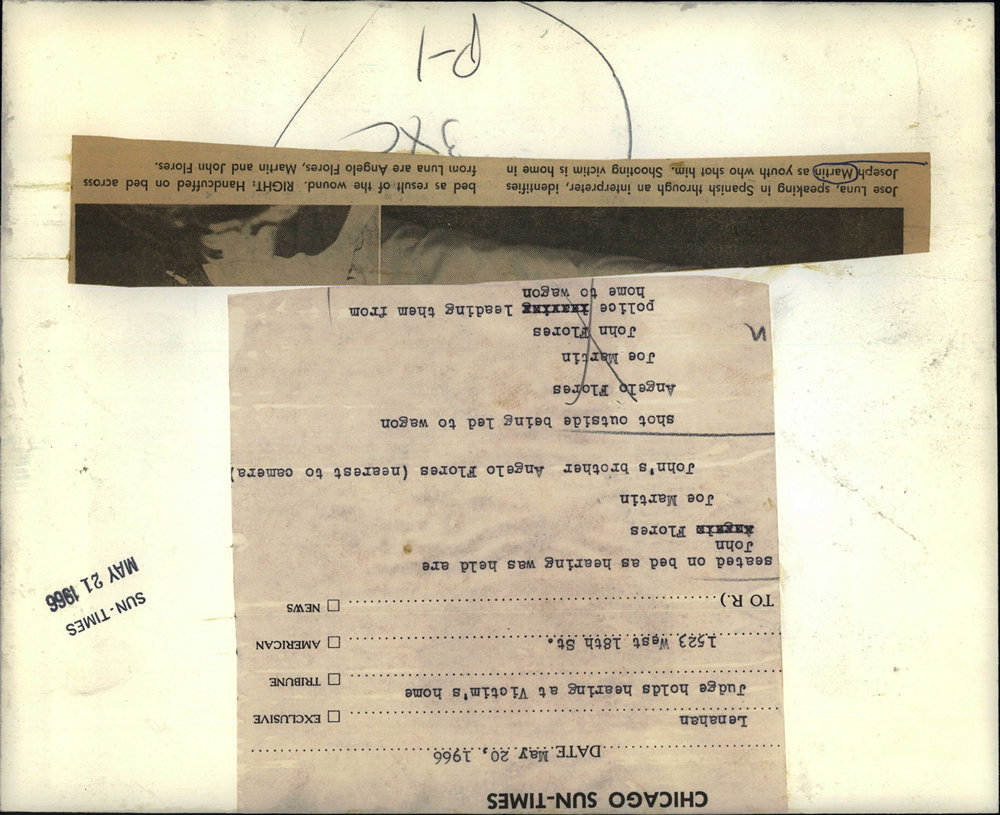 CHICAGO SUN-TIMES
DATE May 20, 1966
Lenahan
EXCLUSIVE
Judge holds hearing at Victim's home
TRIBUNE
1523 West 18th St.
AMERICAN
TO R.)
NEWS
seated on bed as hearing was held are
John
Flores
Joe Martin
John's brother Angelo Flores (nearest to camera)
shot outside being led to wagon
Angelo Flores
Joe Martin
John Flores
police leading them from
home to wagon
Jose Luna, speaking in Spanish through an interpreter, identifies
Joseph Martin as youth who shot him. Shooting victim is home in
bed as result of the wound. RIGHT: Handcuffed on bed across
from Luna are Angelo Flores, Martin and John Flores.
3XC
P-1
SUN-TIMES
MAY 21 1966